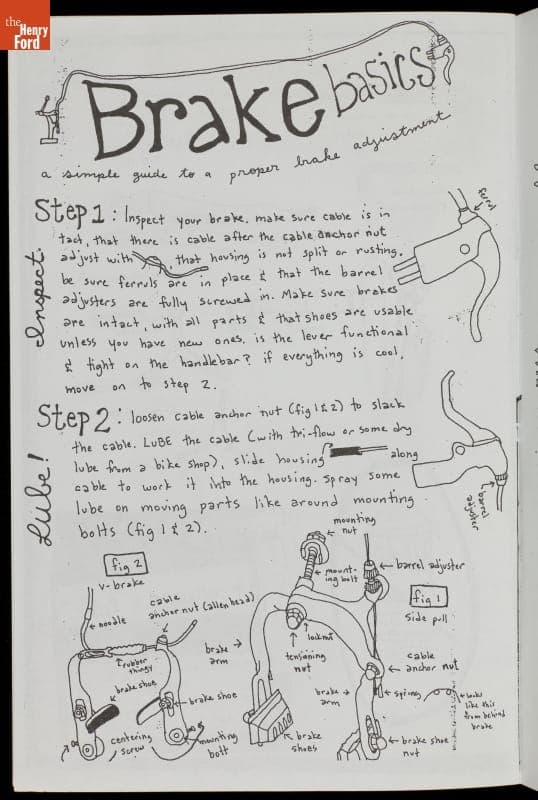 the Henry Ford
Brake basics
a simple guide to a proper brake adjustment
Step 1: Inspect your brake. make sure cable is in
tact, that there is cable after the cable anchor nut
adjust with , that housing is not split or rusting.
be sure ferruls are in place & that the barrel
adjusters are fully screwed in. Make sure brakes
are intact, with all parts & that shoes are usable
unless you have new ones. is the lever functional
& tight on the handlebar? if everything is cool,
move on to step 2.
Inspect.
ferrul
Step 2: loosen cable anchor nut (fig 1 & 2) to slack
the cable. LUBE the cable (with tri-flow or some dry
lube from a bike shop), slide housing along
cable to work it into the housing. Spray some
lube on moving parts like around mounting
bolts (fig 1 & 2).
Lube!
barrel adjuster
fig 2
v-brake
noodle
cable
anchor nut (allen head)
rubber
thingy
brake shoe
brake shoe
centering
screw
mounting
bolt
mounting
nut
mount-
ing bolt
barrel adjuster
fig 1
side pull
locknut
tensioning
nut
brake
arm
cable
anchor nut
brake
arm
spring
looks
like this
from behind
brake
brake
shoes
brake shoe
nut